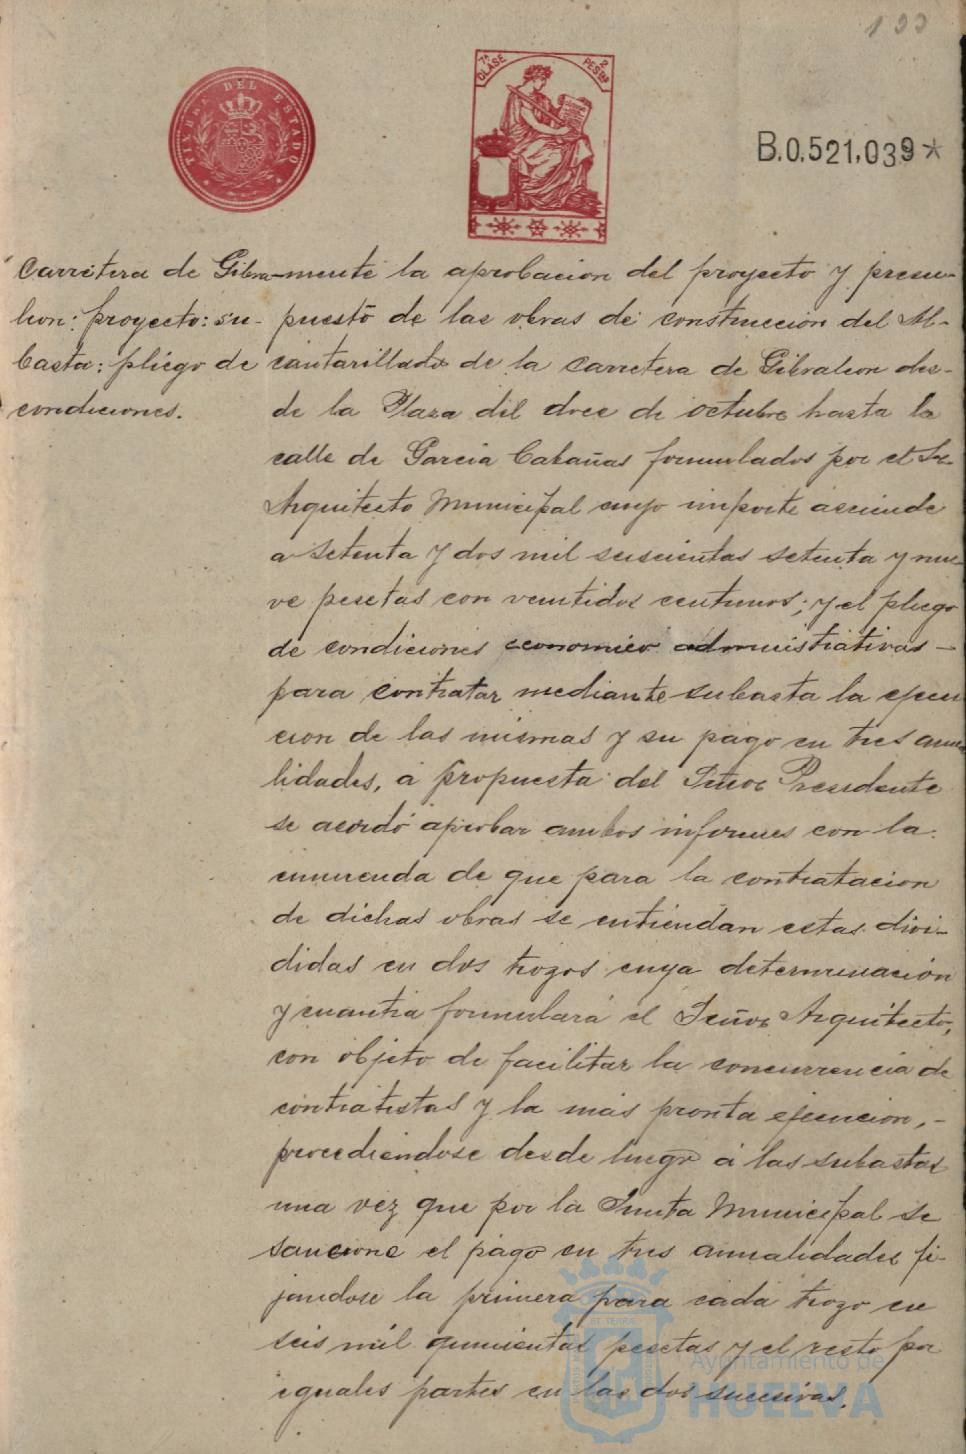 133
TIMBRE DEL ESTADO
7ª CLASE
2 PESTAS
B.0,521,039*
Carretera de Gibra-
leon: proyecto: su-
basta: pliego de
condiciones.
mente la aprobacion del proyecto y presu-
puesto de las obras de construccion del Al-
cantarillado de la Carretera de Gibraleon des-
de la Plaza del doce de octubre hasta la
calle de Garcia Cabañas formulados por el Sr.
Arquitecto Municipal cuyo importe asciende
a setenta y dos mil seiscientas setenta y nue-
ve pesetas con veintidos centimos; y el pliego
de condiciones economico administrativas -
para contratar mediante subasta la ejecu
cion de las mismas y su pago en tres anua
lidades, á propuesta del Señor Presidente
se acordó aprobar ambos informes con la
enmienda de que para la contratacion
de dichas obras se entiendan estas divi-
didas en dos trozos cuya determinación
y cuantia formulará el Señor Arquitecto,
con objeto de facilitar la concurrencia de
contratistas y la mas pronta ejecucion, -
procediendose desde luego á las subastas
una vez que por la Junta Municipal se
sancione el pago en tres anualidades fi-
jandose la primera para cada trozo en
seis mil quinientas pesetas y el resto por
iguales partes en las dos sucesivas.
Ayuntamiento de
HUELVA